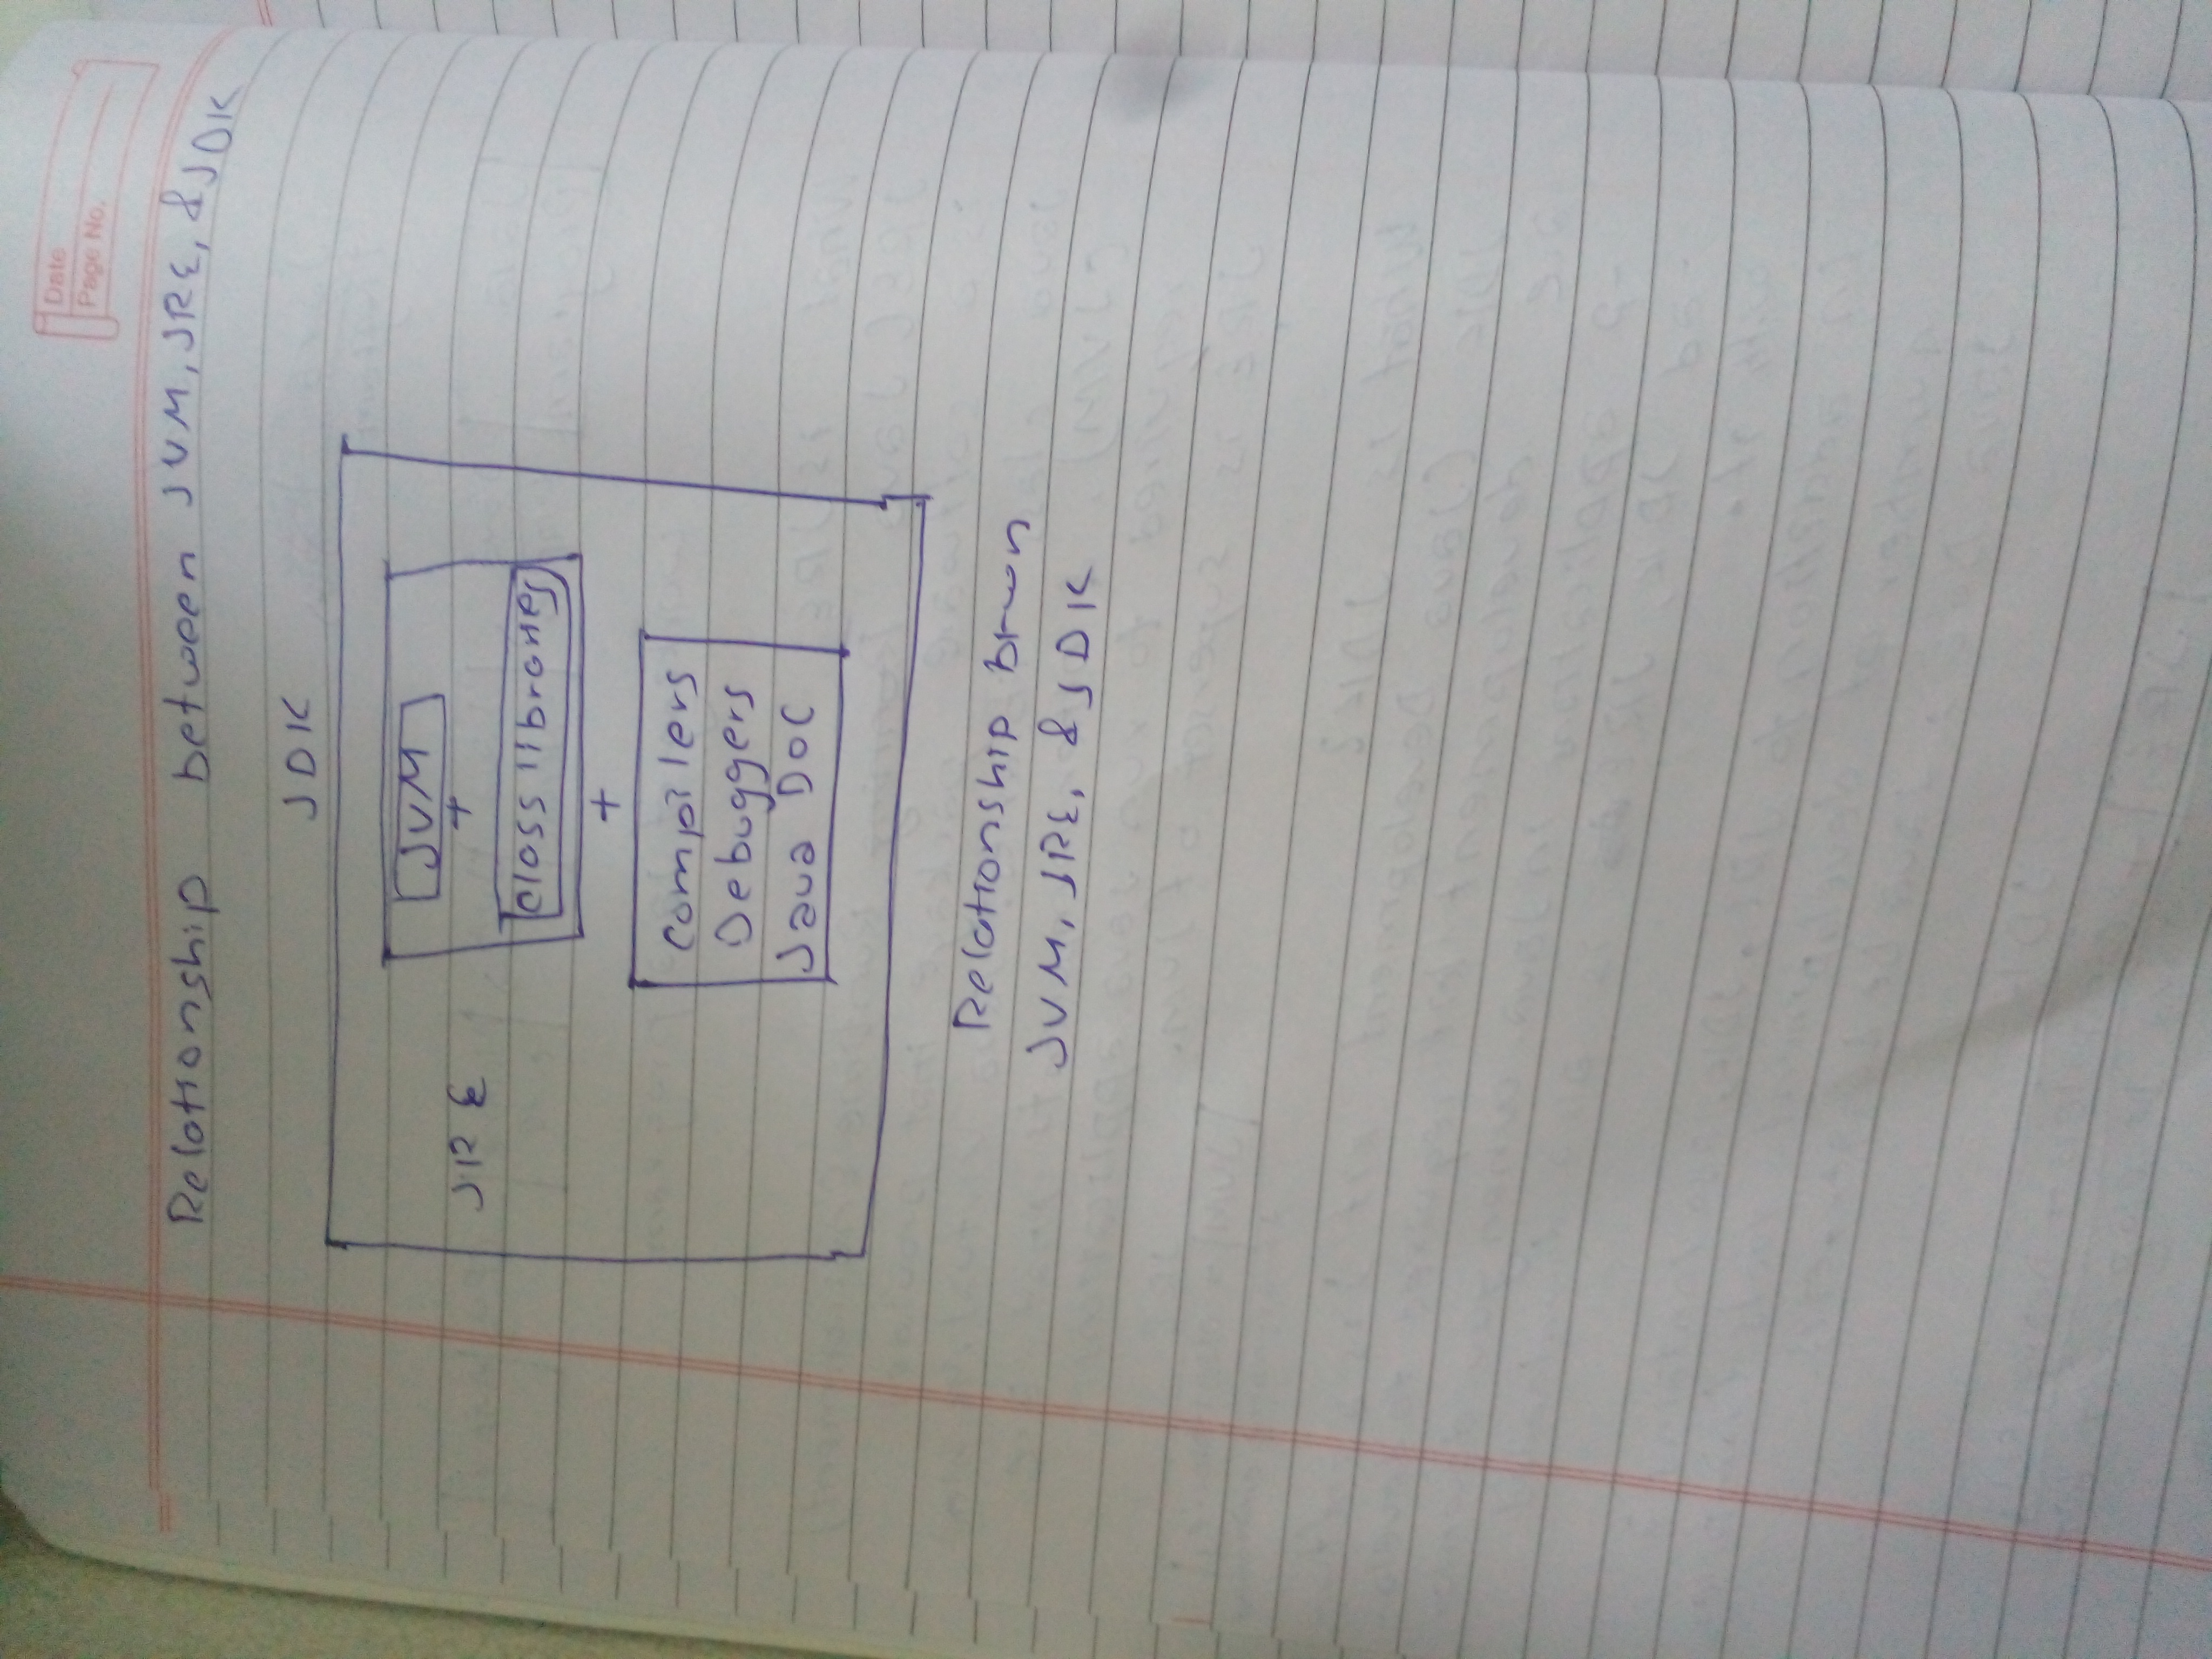 Date
Page No.
Relationship between JVM, JRE, & JDK
JDK
JVM
+
JRE
class libraries
+
Compilers
Debuggers
Java DOC
Relationship btwn
JVM, JRE, & JDK